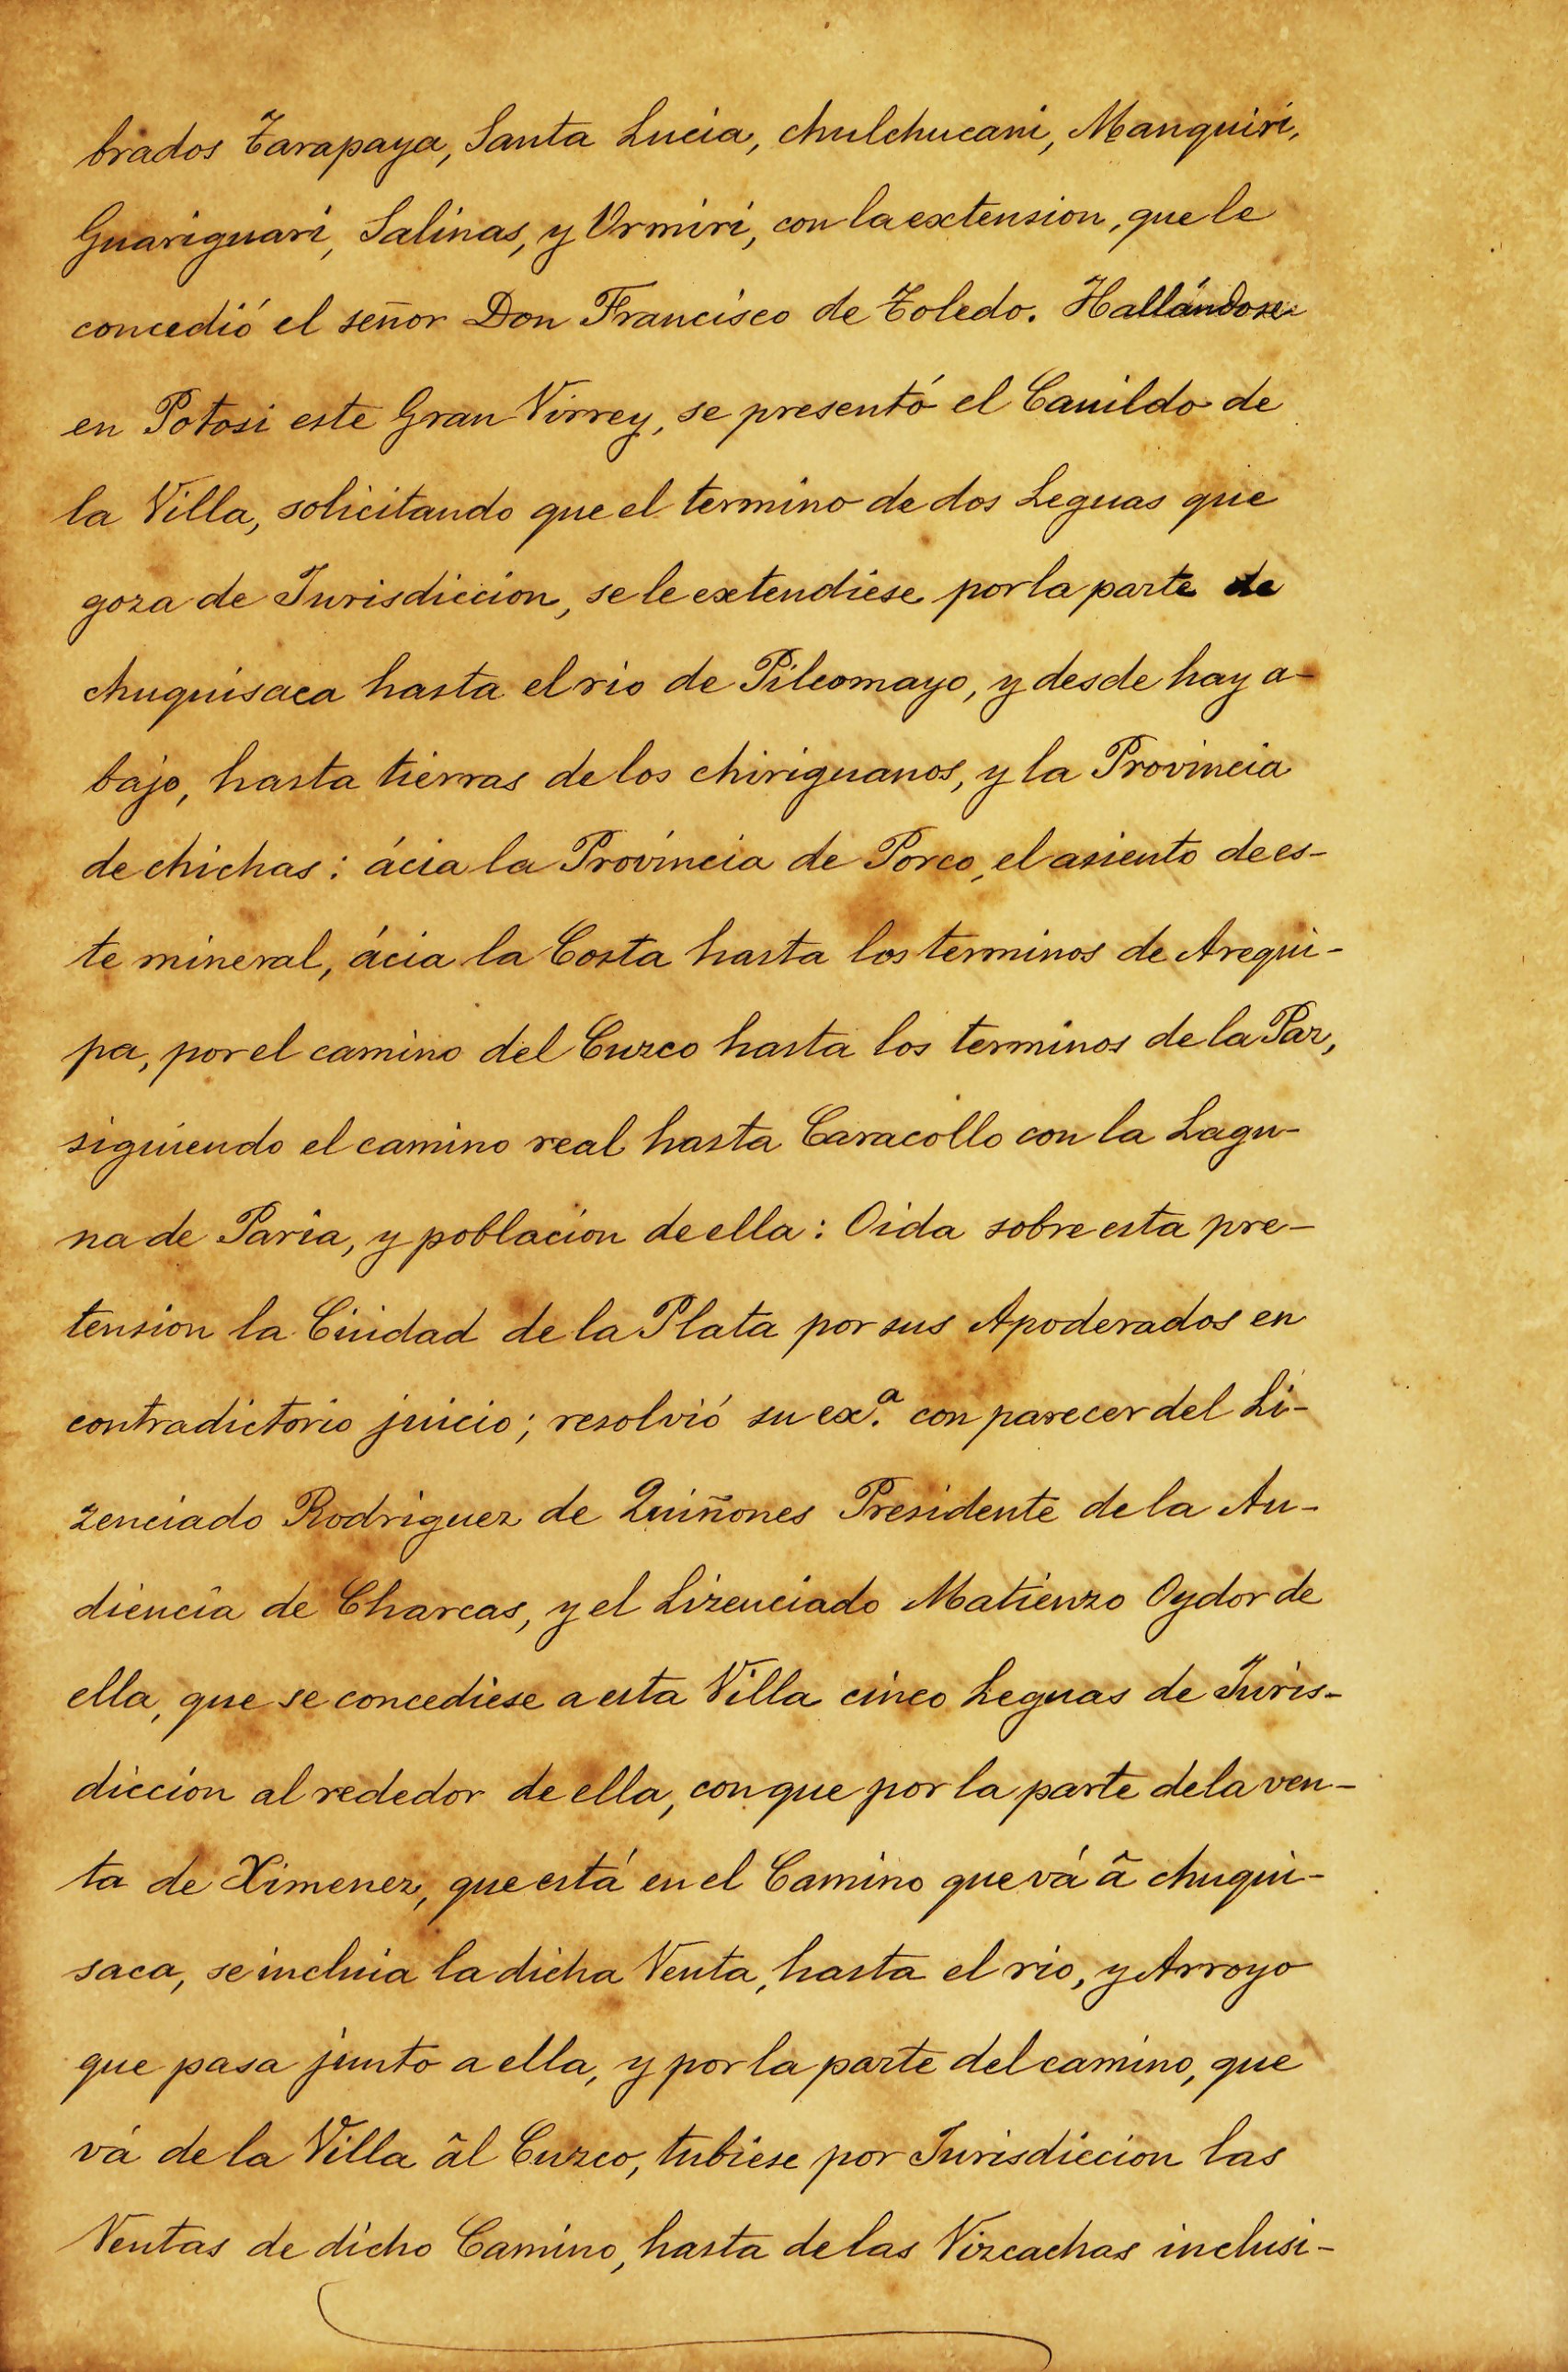 brados Tarapaya, Santa Lucia, chulchucani, Manquiri,
Guariguari, Salinas, y Vrmiri, con la extension, que le
concedió el señor Don Francisco de Toledo. Hallándose
en Potosi este Gran Virrey, se presentó el Cauildo de
la Villa, solicitando que el termino de dos Leguas que
goza de Jurisdiccion, se le extendiese por la parte de
chuquisaca hasta el rio de Pilcomayo, y desde hay a-
bajo, hasta tierras de los chiriguanos, y la Provincia
de chichas: ácia la Provincia de Porco, el asiento de es-
te mineral, ácia la Costa hasta los terminos de Arequi-
pa, por el camino del Cuzco hasta los terminos de la Paz,
siguiendo el camino real hasta Caracollo con la Lagu-
na de Paria, y poblacion de ella: Oida sobre esta pre-
tension la Ciudad de la Plata por sus Apoderados en
contradictorio juicio; resolvió su ex.ª con parecer del Li-
zenciado Rodriguez de Quiñones Presidente de la Au-
diencia de Charcas, y el Lizenciado Matienzo Oydor de
ella, que se concediese a esta Villa cinco Leguas de Juris-
diccion al rededor de ella, con que por la parte de la ven-
ta de Ximenez, que está en el Camino que vá â chuqui-
saca, se incluia la dicha Venta, hasta el rio, y Arroyo
que pasa junto a ella, y por la parte del camino, que
vá de la Villa âl Cuzco, tubiese por Jurisdiccion las
Ventas de dicho Camino, hasta de las Vizcachas inclusi-